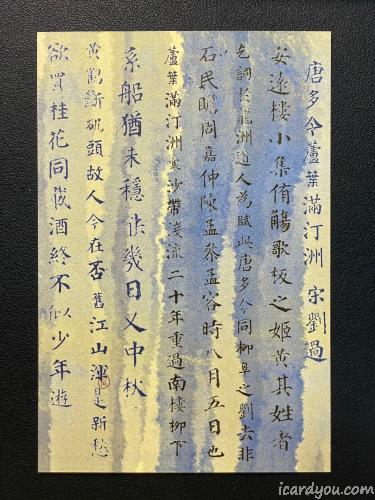 唐多令蘆葉滿汀洲 宋劉過
安遠樓小集侑觴歌板之姬黃其姓者
乞詞於龍洲道人為賦此唐多令同柳阜之劉去非
石民瞻周嘉仲陳孟參孟容時八月五日也
蘆葉滿汀洲寒沙帶淺流二十年重過南樓柳下
系船猶未穩能幾日又中秋
黃鶴斷磯頭故人今在否舊江山渾是新愁
欲買桂花同載酒終不似少年遊
icardyou.com